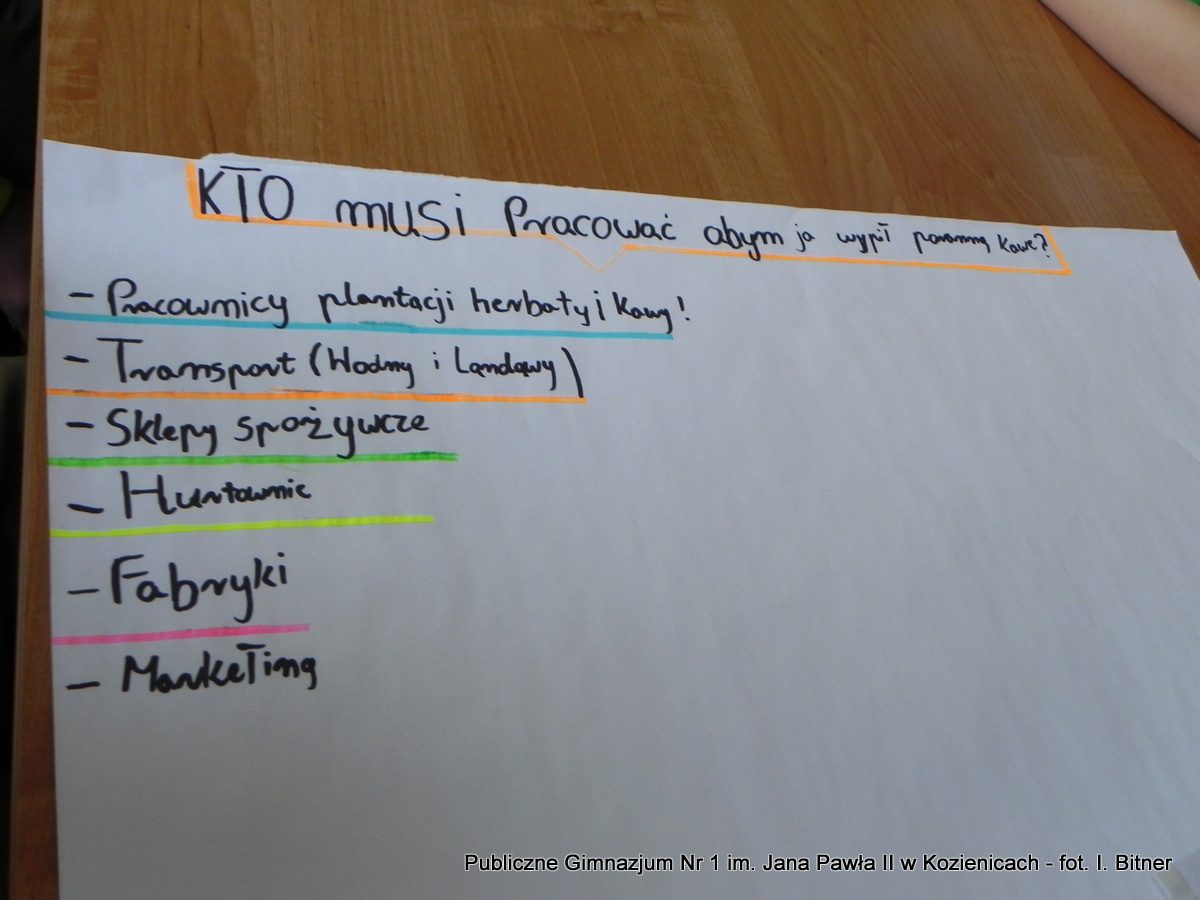 KTO musi Pracować abym ja wypił poranną kawę?
- Pracownicy plantacji herbaty i kawy!
- Transport (Wodny i Lądowy)
- Sklepy spożywcze
- Hurtownie
- Fabryki
- Marketing
Publiczne Gimnazjum Nr 1 im. Jana Pawła II w Kozienicach - fot. I. Bitner